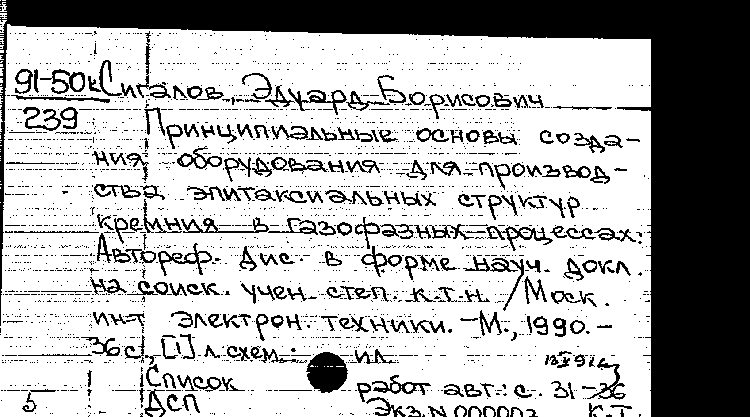 91-50к Сигалов, Эдуард Борисович
239 Принципиальные основы созда-
ния оборудования для производ-
ства эпитаксиальных структур
кремния в газофазных процессах:
Автореф. дис. в форме науч. докл.
на соиск. учен. степ. к.т.н. / Моск.
ин-т электрон. техники. – М., 1990. –
36 с., [1] л. схем.: ил.
Список работ авт.: с. 31-36
5 ДСП Экз. N 000003 К.Т.